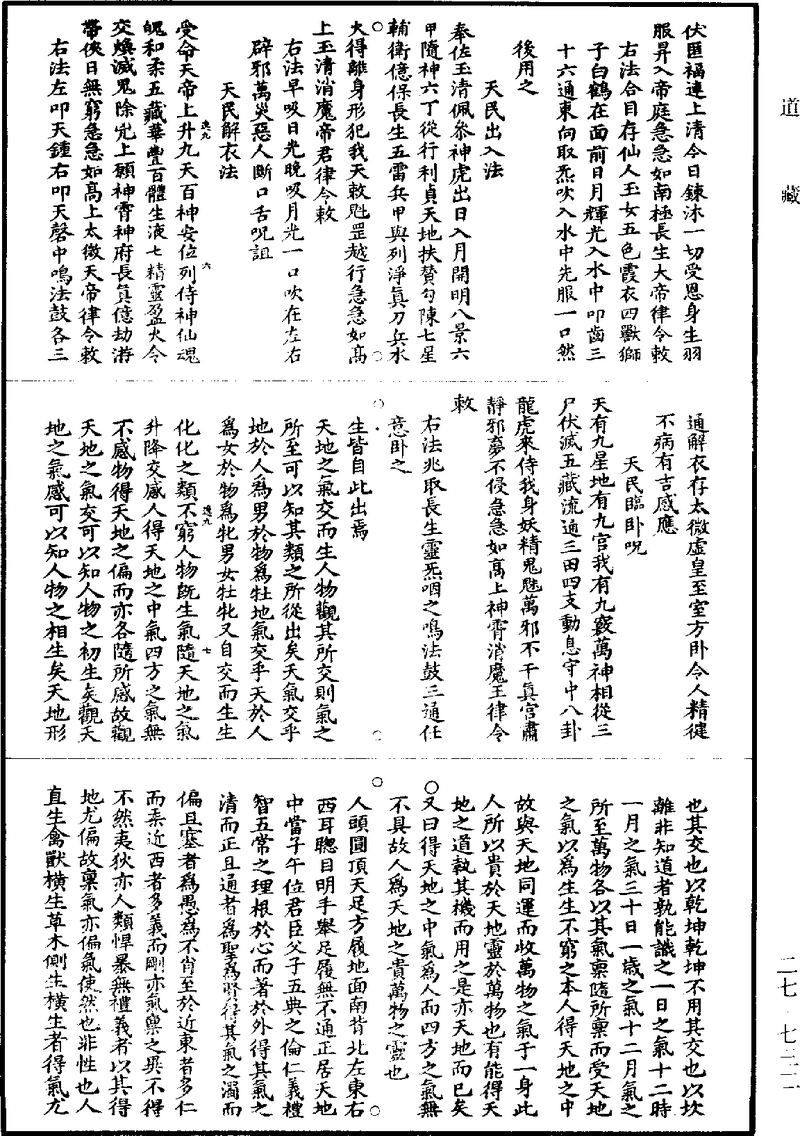 道藏
伏匿福連上清今日鍊沐一切受恩身生羽
服昇入帝庭急急如南極長生大帝律令敕
右法合目存仙人玉女五色霞衣四獸獅
子白鶴在面前日月輝光入水中叩齒三
十六通東向取炁吹入水中先服一口然
後用之
天民出入法
奉佐玉清佩參神虎出日入月開明八景六
甲隨神六丁從行利貞天地扶贊勾陳七星
輔衛億保長生五雷兵甲與列淨真刀兵水
火得離身形犯我天敕尅罡越行急急如高
上玉清消魔帝君律令敕
右法早吸日光晚吸月光一口吹在左右
辟邪萬災惡人斷口舌呪詛
天民解衣法
受命天帝上升九天百神安位列侍神仙魂
魄和柔五藏華豐百體生液七精靈盈火令
交煥滅鬼除兇上願神霄神府長真億劫游
帶俠日無窮急急如高上太微天帝律令敕
右法左叩天鍾右叩天磬中鳴法鼓各三
通解衣存太微虛皇至室方卧令人精健
不病有吉感應
天民臨卧呪
天有九星地有九宮我有九竅萬神相從三
尸伏滅五藏流通三田四支動息守中八卦
龍虎來侍我身妖精鬼魅萬邪不干真宮肅
靜邪夢不侵急急如高上神霄消魔王律令
敕
右法兆取長生靈炁咽之鳴法鼓三通任
意卧之
生皆自此出焉
天地之氣交而生人物觀其所交則氣之
所至可以知其類之所從出矣天氣交乎
地於人為男於物為牡地氣交乎天於人
為女於物為牝男女牡牝又自交而生生
化化之類不窮人物旣生氣隨天地之氣
升降交感人得天地之中氣四方之氣無
不感物得天地之偏而亦各隨所感故觀
天地之氣交可以知人物之初生矣觀天
地之氣感可以知人物之相生矣天地形
也其交也以乾坤乾坤不用其交也以坎
離非知道者孰能識之一日之氣十二時
一月之氣三十日一歲之氣十二月氣之
所至萬物各以其氣禀隨所禀而受天地
之氣以為生生不窮之本人得天地之中
故與天地同運而收萬物之氣于一身此
人所以貴於天地靈於萬物也有能得天
地之道執其機而用之是亦天地而已矣
又曰得天地之中氣為人而四方之氣無
不具故人為天地之貴萬物之靈也
人頭圓頂天足方履地面南背北左東右
西耳聰目明手舉足履無不通正居天地
中當子午位君臣父子五典之倫仁義禮
智五常之理根於心而著於外得其氣之
清而正且通者為聖為賢得其氣之濁而
偏且塞者為愚為不肖至於近東者多仁
而柔近西者多義而剛亦氣禀之異不得
不然夷狄亦人類悍暴無禮義者以其得
地尤偏故禀氣亦偏氣使然也非性也人
直生禽獸橫生草木側生橫生者得氣尤
二七·七三二